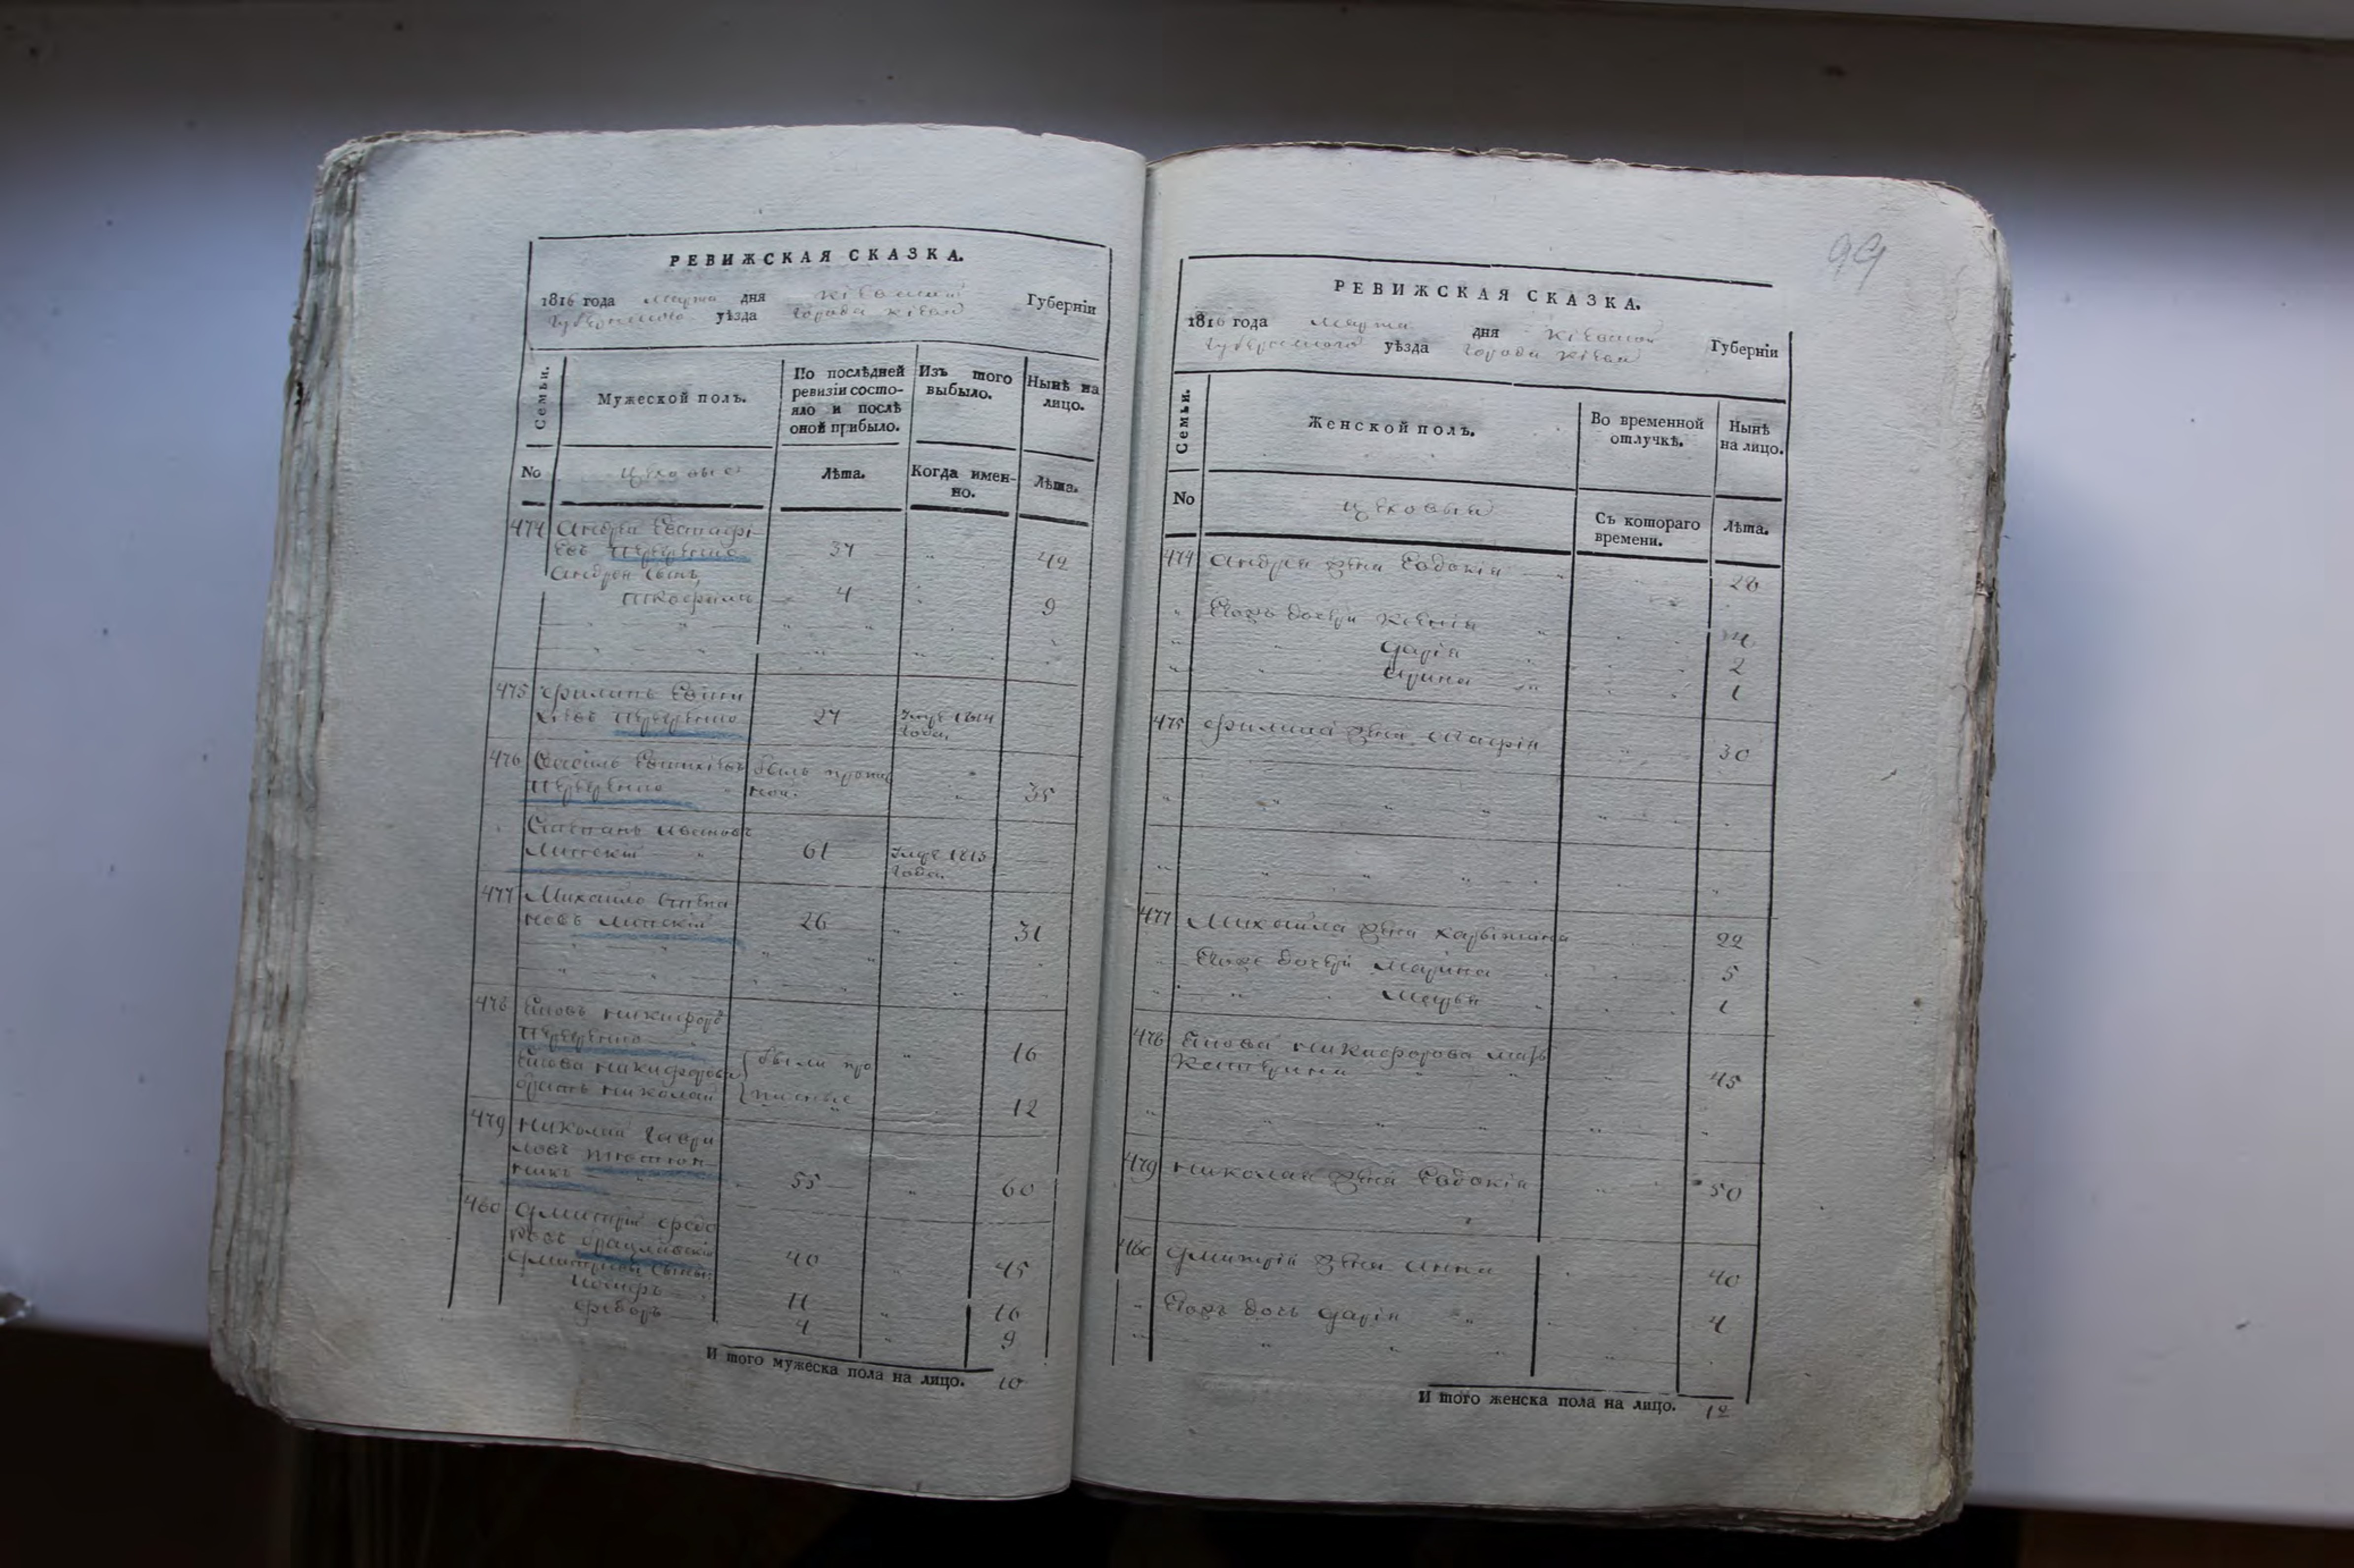 РЕВИЖСКАЯ СКАЗКА.
1816 года марта дня Кіевской Губерніи
Губернского уѣзда города Кіева
Семьи.
Мужеской полъ.
По послѣдней ревизіи состо-
яло и послѣ оной прибыло.
Изъ того выбыло.
Нынѣ на лицо.
No
цеховые
Лѣта.
Когда имен-
но.
Лѣта.
474 Андрей Евстафі-
евъ Переренко 37 42
Андрея сынъ
4 9
475 Филипъ Евти
хіевъ Переренко 27 1814
года
476 Василь Евтихіевъ былъ пропи
Переренко 35
Степанъ Ивановъ
Липскій 61 1813
года
477 Михайло Степа
новъ Липскій 26 31
478 Никифоръ
Переренко 16
Никифорова были про
братъ Николай писные 12
479 Николай Гаври
ловъ
никъ 55 60
480 Дмитрій Федо
ровъ Брацлавскій 40 45
Дмитрія сыны
Іосифъ 11 16
Федоръ 4 9
И того мужеска пола на лицо. 10
99
РЕВИЖСКАЯ СКАЗКА.
1816 года марта дня Кіевской Губерніи
Губернского уѣзда города Кіева
Семьи.
Женской полъ.
Во временной отлучкѣ.
Нынѣ на лицо.
No
цеховыя
Съ котораго времени.
Лѣта.
474 Андрея жена Евдокія 28
Ксенія
Дарія 2
Ирина 1
475 Филипа жена Марія 30
477 Михайла жена Катерина 22
дочери Марина 5
1
478 Никифорова мать
Катерина 45
479 Николая жена Евдокія 50
480 Дмитрія жена Анна 40
дочь Дарія 4
И того женска пола на лицо. 12